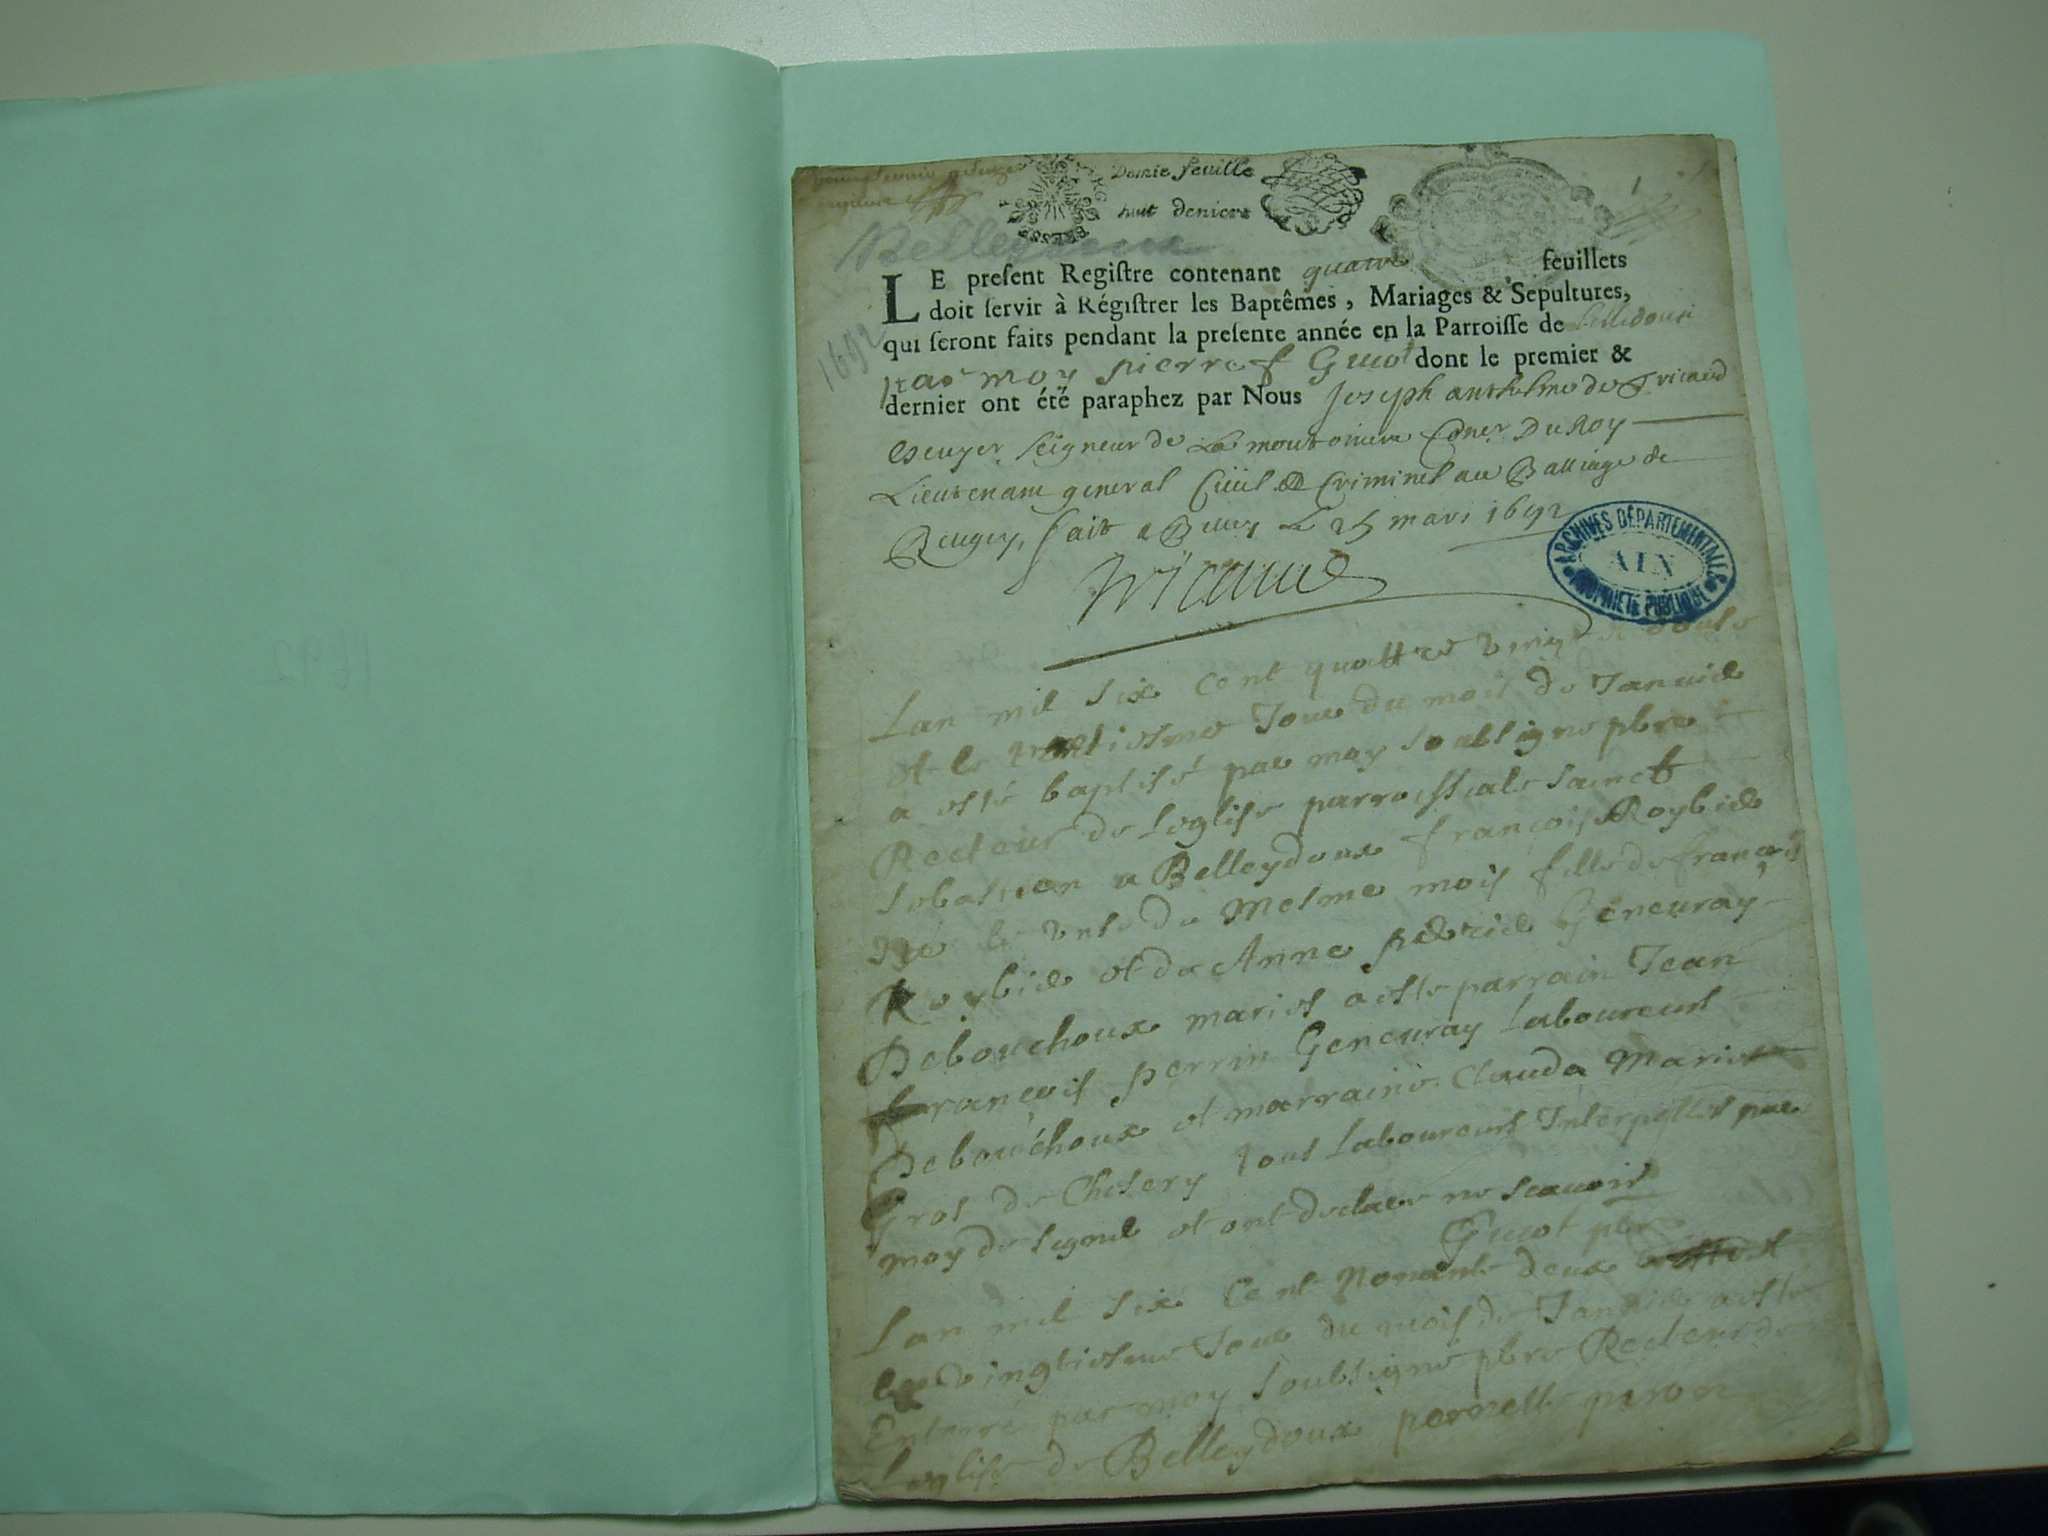 Demie feuille
huit deniers
Belleydoux
1692
LE present Registre contenant quatre feuillets
doit servir à Régistrer les Baptêmes, Mariages & Sepultures,
qui seront faits pendant la presente année en la Parroisse de
moy pierre f Guiot dont le premier &
dernier ont été paraphez par Nous Joseph anthelme de Tricaud
Escuyer seigneur de La moutonniere Coner Du Roy
Lieutenant general Ciuil & Criminel au Balliage de
Beugey, fait a Belley Le 25 mars 1692
Tricaud
ARCHIVES DÉPARTEMENTALES
AIN
PROPRIÉTÉ PUBLIQUE
Lan mil six cent quattre vingt et douse
et le trentiesme Jour du mois de Januier
a esté baptisé par moy soubsigne pbre
Recteur de leglise parroissiale sainct
sebastien a Belleydoux francois Roybier
Né le du mesme mois fills de francois
Roybier et de Anne perrier Geneuray
Debouchoux maries a este parrain Jean
francois perrin Geneuray Laboureurs
Debouchoux et marraine Clauda Mariet
Gros de Chesery tous Laboureurs Interpelles par
moy de signer et ont declare ne scauoir
Guiot pbre
Lan mil six Cent Nonante deux
le vingtiesme Jour du mois de Januier a este
Enterré par moy soubsigne pbre Recteur de
leglise de Belleydoux pernette